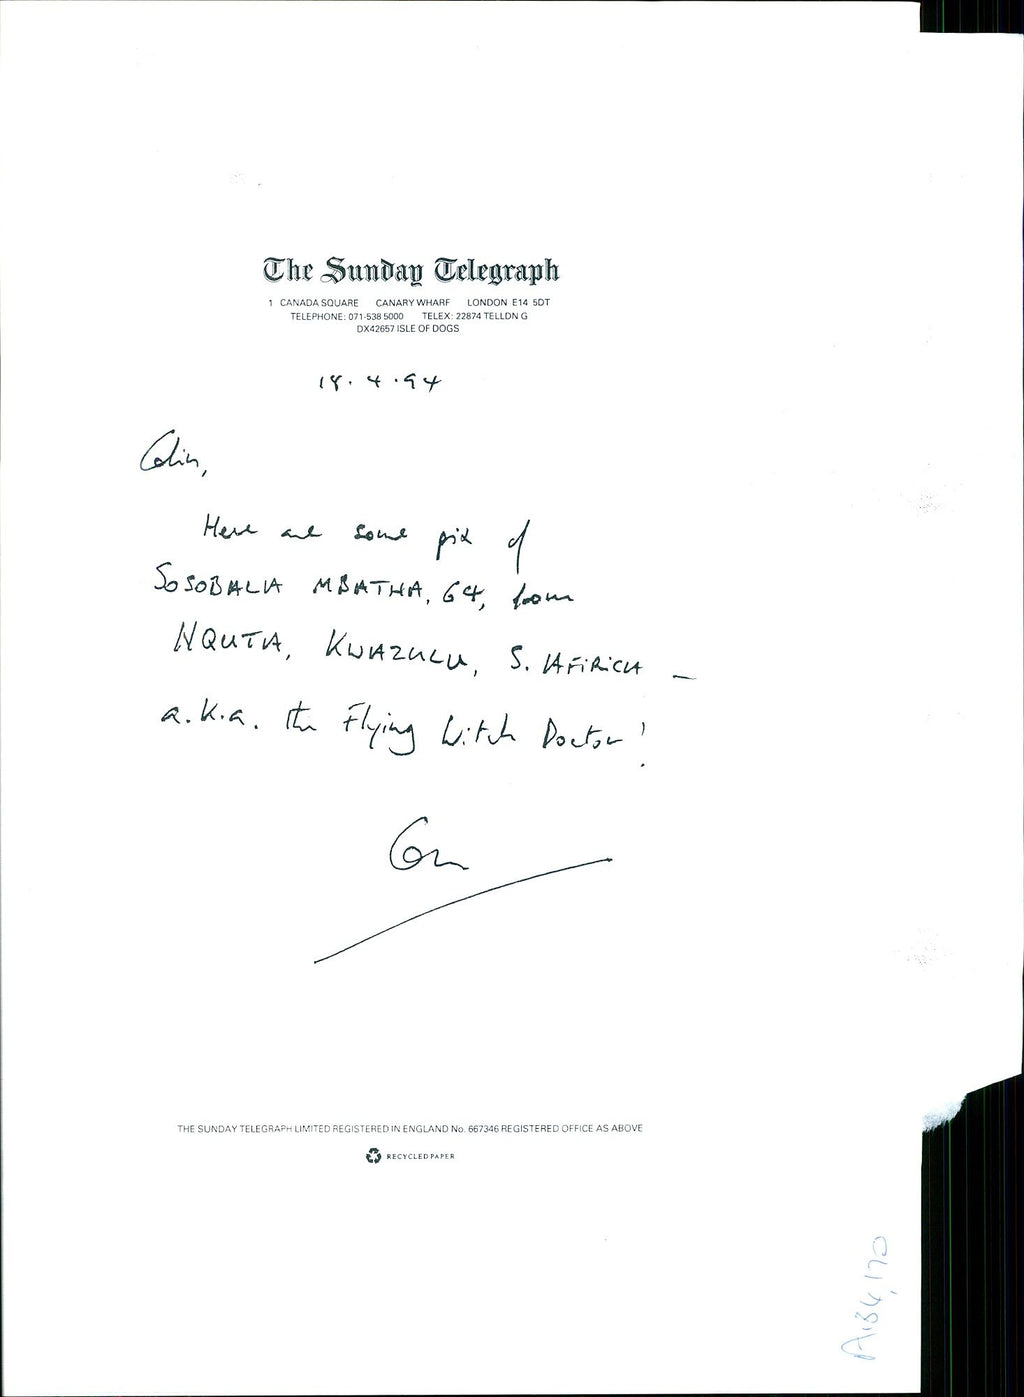 The Sunday Telegraph
1 CANADA SQUARE CANARY WHARF LONDON E14 5DT
TELEPHONE: 071-538 5000 TELEX: 22874 TELLDN G
DX42657 ISLE OF DOGS
18.4.94
Colin,
Here are some pix of
SOSOBALA MBATHA, 64, from
NQUTA, KWAZULU, S. AFRICA –
a.k.a. the Flying Witch Doctor!
THE SUNDAY TELEGRAPH LIMITED REGISTERED IN ENGLAND No. 667346 REGISTERED OFFICE AS ABOVE
RECYCLED PAPER